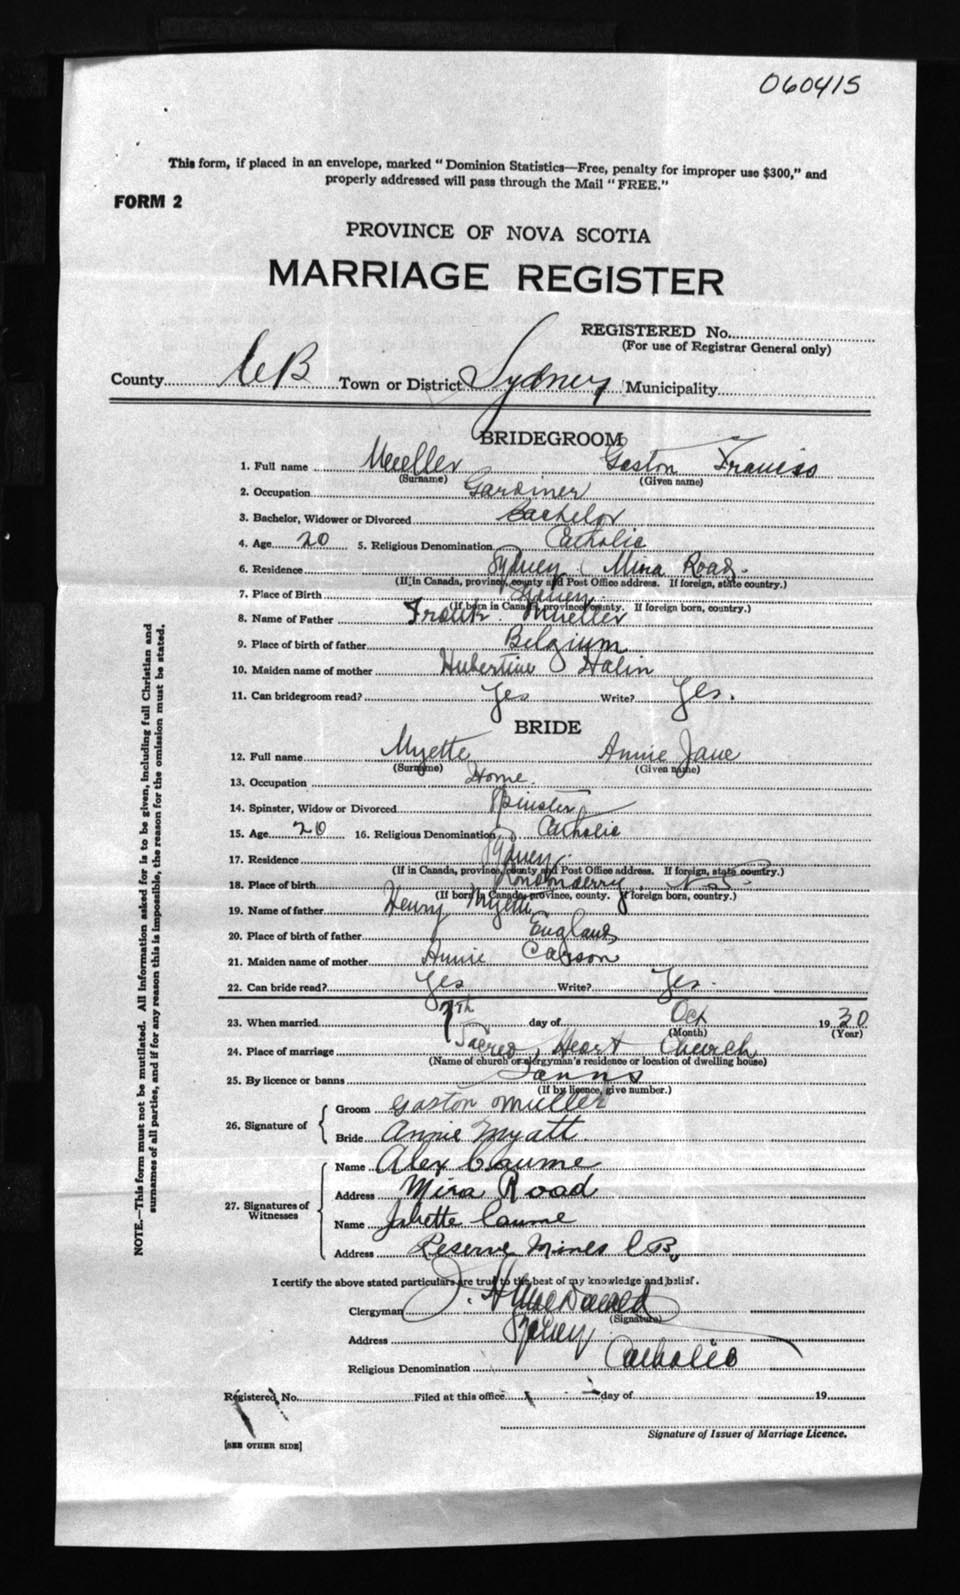 060415
This form, if placed in an envelope, marked "Dominion Statistics—Free, penalty for improper use $300," and
properly addressed will pass through the Mail "FREE."
FORM 2
PROVINCE OF NOVA SCOTIA
MARRIAGE REGISTER
REGISTERED No.
(For use of Registrar General only)
County CB Town or District Sydney Municipality
BRIDEGROOM
1. Full name Mueller Gaston Francis
(Surname) (Given name)
2. Occupation Gardiner
3. Bachelor, Widower or Divorced Bachelor
4. Age 20 5. Religious Denomination Catholic
6. Residence Sydney Mira Road.
(If in Canada, province, county and Post Office address. If foreign, state country.)
7. Place of Birth Sydney.
(If born in Canada, province, county. If foreign born, country.)
8. Name of Father Frank Mueller
9. Place of birth of father Belgium
10. Maiden name of mother Hubertine Halin
11. Can bridegroom read? Yes Write? Yes.
BRIDE
12. Full name Myette Annie Jane
(Surname) (Given name)
13. Occupation Home.
14. Spinster, Widow or Divorced Spinster
15. Age 20 16. Religious Denomination Catholic
17. Residence Sydney.
(If in Canada, province, county and Post Office address. If foreign, state country.)
18. Place of birth
(If born in Canada, province, county. If foreign born, country.)
19. Name of father Henry Myette
20. Place of birth of father England
21. Maiden name of mother Annie Carson
22. Can bride read? Yes Write? Yes.
23. When married 7th day of Oct 1930
(Month) (Year)
24. Place of marriage Sacred Heart Church
(Name of church or clergyman's residence or location of dwelling house)
25. By licence or banns Banns
(If by licence, give number.)
26. Signature of Groom Gaston Muller
Bride Annie Myatt
27. Signatures of Witnesses Name Alex Caume
Address Mira Road
Name Juliette Caume
Address Reserve Mines C B,
I certify the above stated particulars are true to the best of my knowledge and belief.
Clergyman J. H. MacDonald
(Signature)
Address Sydney
Religious Denomination Catholic
Registered No. Filed at this office day of 19
Signature of Issuer of Marriage Licence.
[SEE OTHER SIDE]
NOTE.—This form must not be mutilated. All information asked for is to be given, including full Christian and
surnames of all parties, and if for any reason this is impossible, the reason for the omission must be stated.